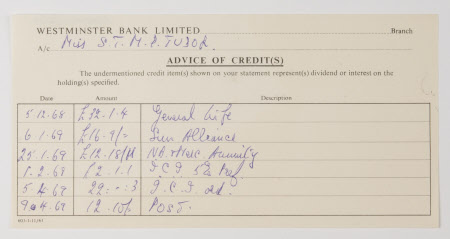 WESTMINSTER BANK LIMITED
Branch
A/c Miss S T. M. P. TUDOR.
ADVICE OF CREDIT(S)
The undermentioned credit item(s) shown on your statement represent(s) dividend or interest on the
holding(s) specified.
Date Amount Description
5.12.68 £72.1.4 General Life
6.1.69 £16.9/= Sun Alliance
25.1.69 £12.18/ Annuity
1.2.69 £2.1.1 I.C.I. 5%
5.4.69 22=:3 I.C.I. Od.
9.4.69 12.15/ POST.